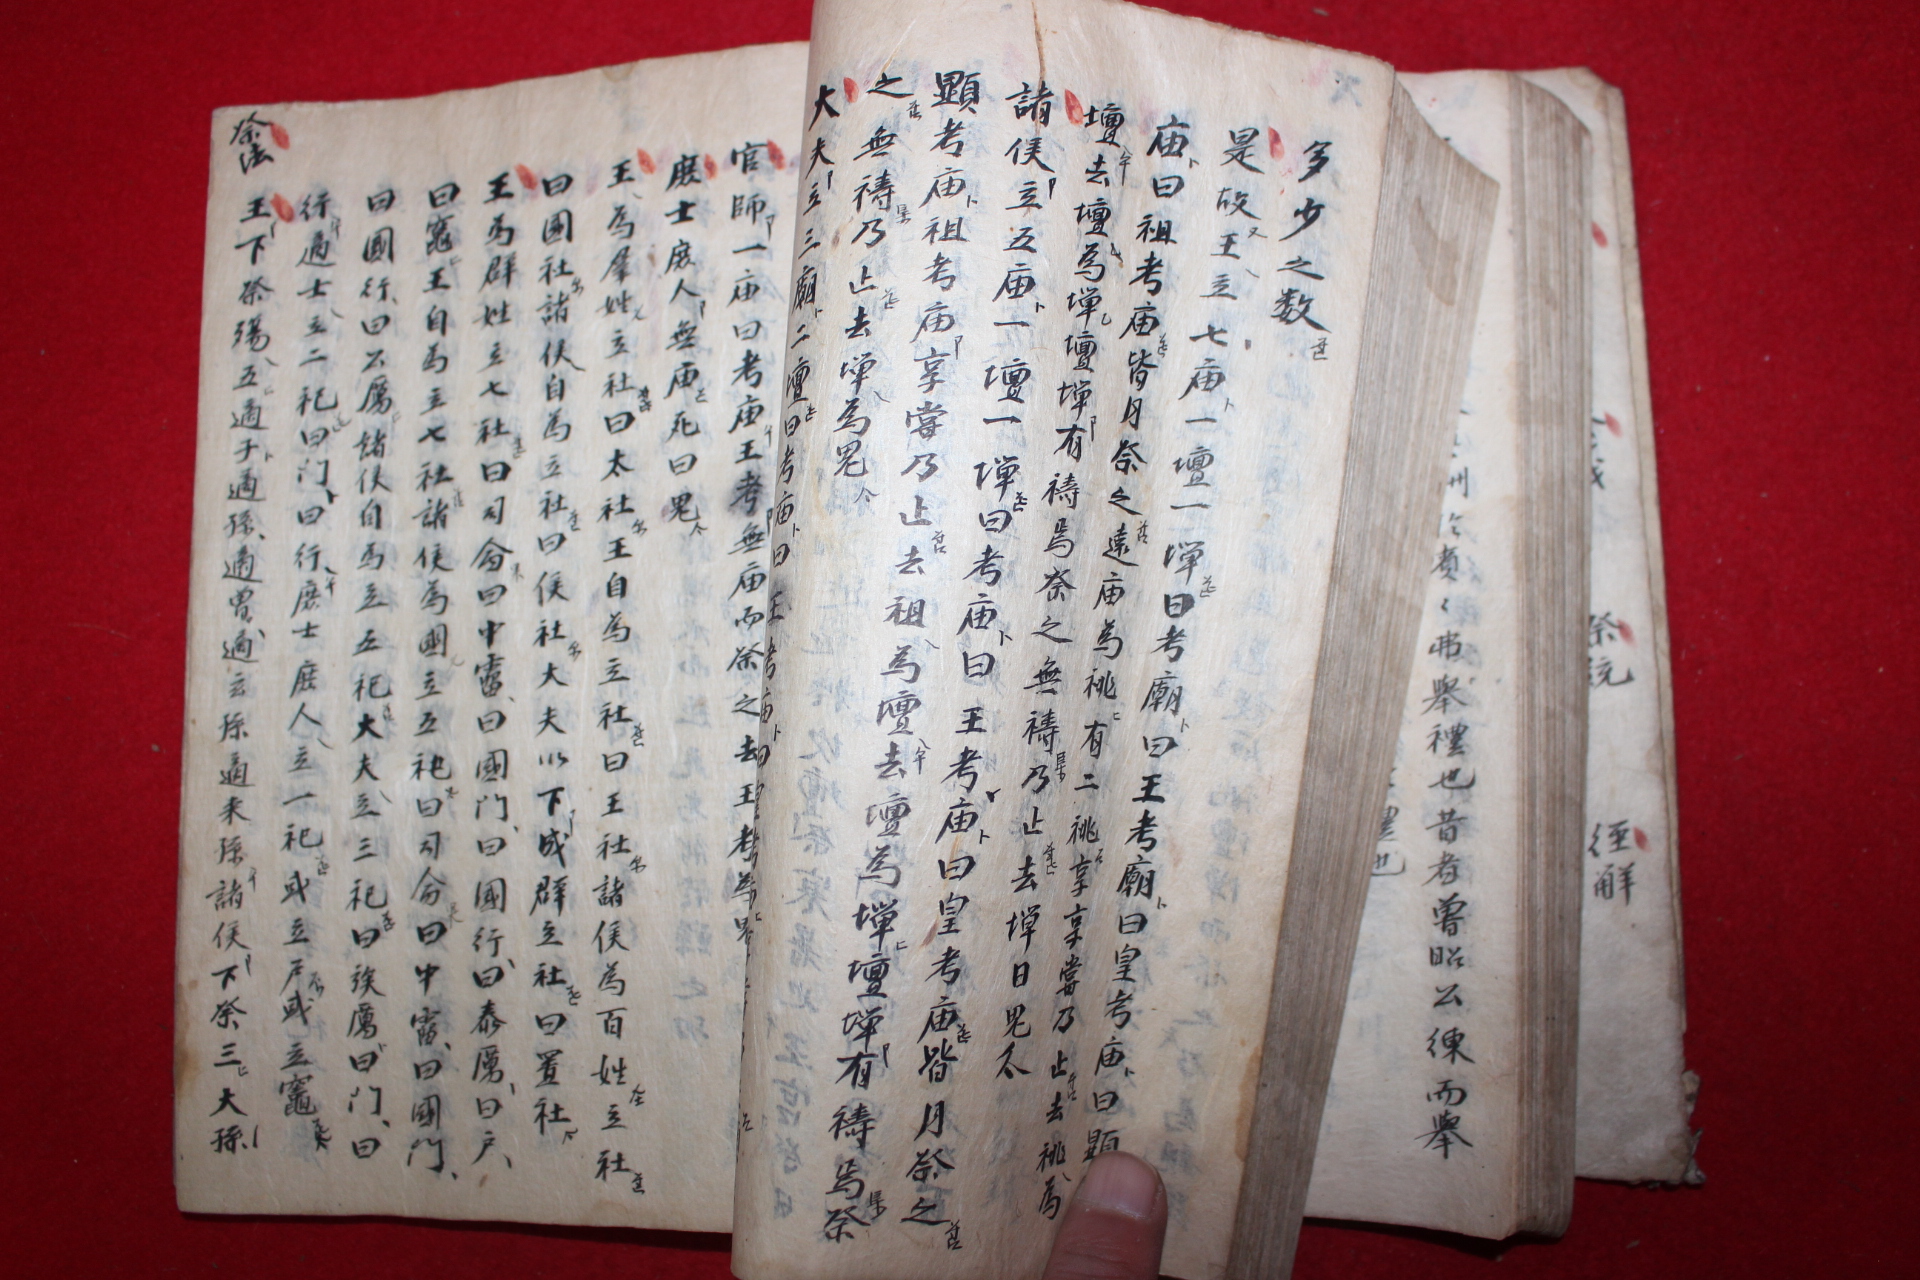 多少之数
是故王立七庙一壇一墠曰考廟曰王考廟曰皇考庙曰顯
庙曰祖考庙皆月祭之遠庙為祧有二祧享
壇去壇為墠壇墠有禱焉祭之無禱乃止去墠曰鬼
享嘗乃止去祧為
諸侯立五庙一壇一墠曰考庙曰王考庙曰皇考庙皆月祭之
顯考庙祖考庙享嘗乃止去祖為壇去壇為墠壇墠有禱焉祭
之無禱乃止去墠為鬼
大夫立三廟二壇曰考庙曰王考庙曰皇
官師一庙曰考庙王考無庙而祭之去王考為鬼
庶士庶人無庙死曰鬼
王為羣姓立社曰太社王自為立社曰王社諸侯為百姓立社
曰國社諸侯自為立社曰侯社大夫以下成群立社曰置社
王為群姓立七社曰司命曰中霤曰國門曰國行曰泰厲曰户
曰竈王自為立七社諸侯為國立五祀曰司命曰中霤曰國門
曰國行曰公厲諸侯自為立五祀大夫立三祀曰族厲曰門曰
行適士立二祀曰门曰行庶士庶人立一祀或立户或立竈
祭法
王下祭殤五適子適孫適曾適玄孫適来孫諸侯下祭三大孫
弗舉禮也昔者魯昭公練而舉
祭統
經解